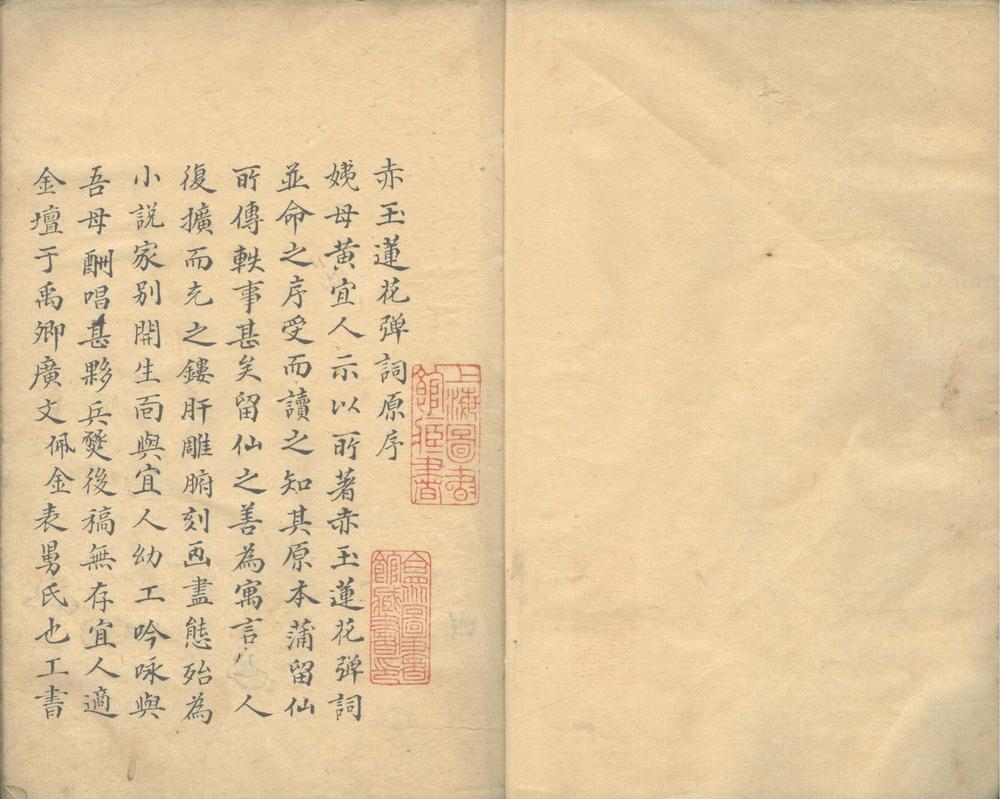 赤玉蓮花弹詞原序
姨母黄宜人示以所著赤玉蓮花弹詞
並命之序受而讀之知其原本蒲留仙
所傳軼事甚矣留仙之善為寓言人
復擴而充之鏤肝雕腑刻画盡態殆為
小説家别開生面與宜人幼工吟咏與
吾母酬唱甚夥兵燹後稿無存宜人適
金壇于禹卿廣文佩金表舅氏也工書
上海圖書館藏書